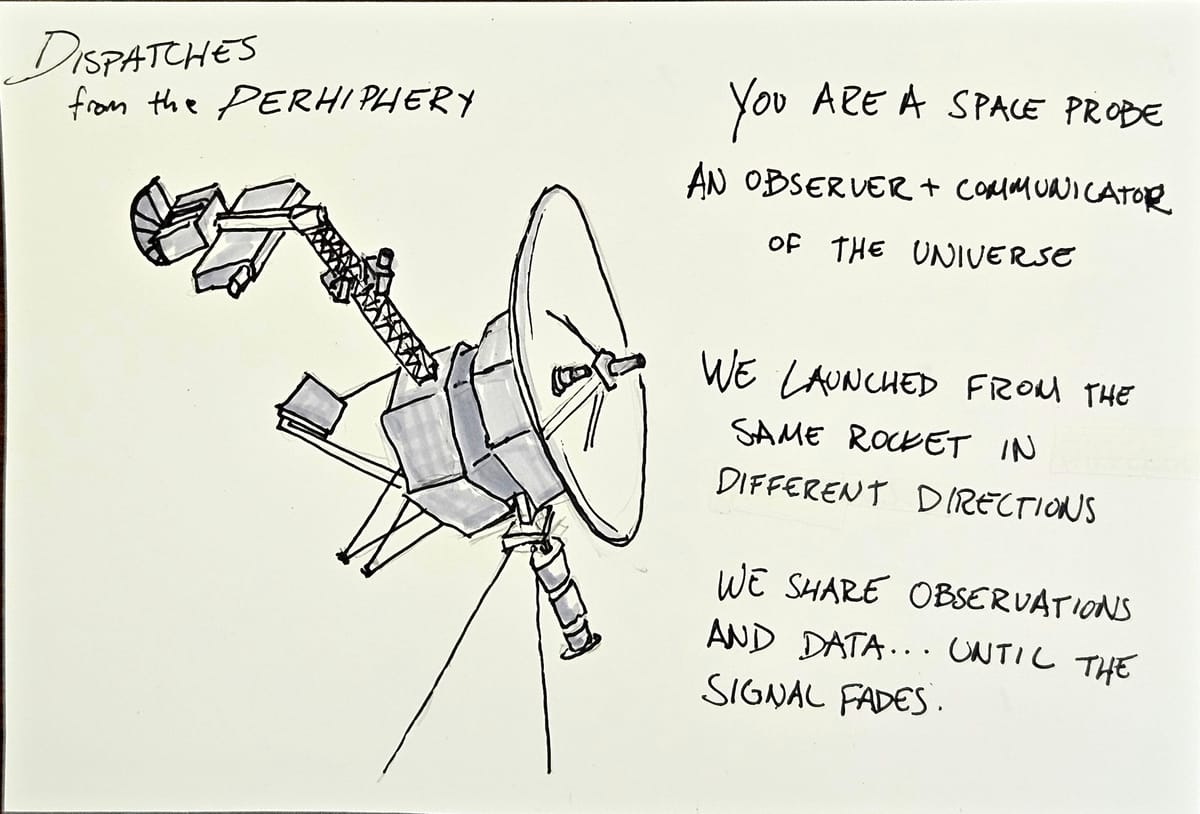 DISPATCHES
from the PERHIPHERY
YOU ARE A SPACE PROBE
AN OBSERVER + COMMUNICATOR
OF THE UNIVERSE
WE LAUNCHED FROM THE
SAME ROCKET IN
DIFFERENT DIRECTIONS
WE SHARE OBSERVATIONS
AND DATA... UNTIL THE
SIGNAL FADES.